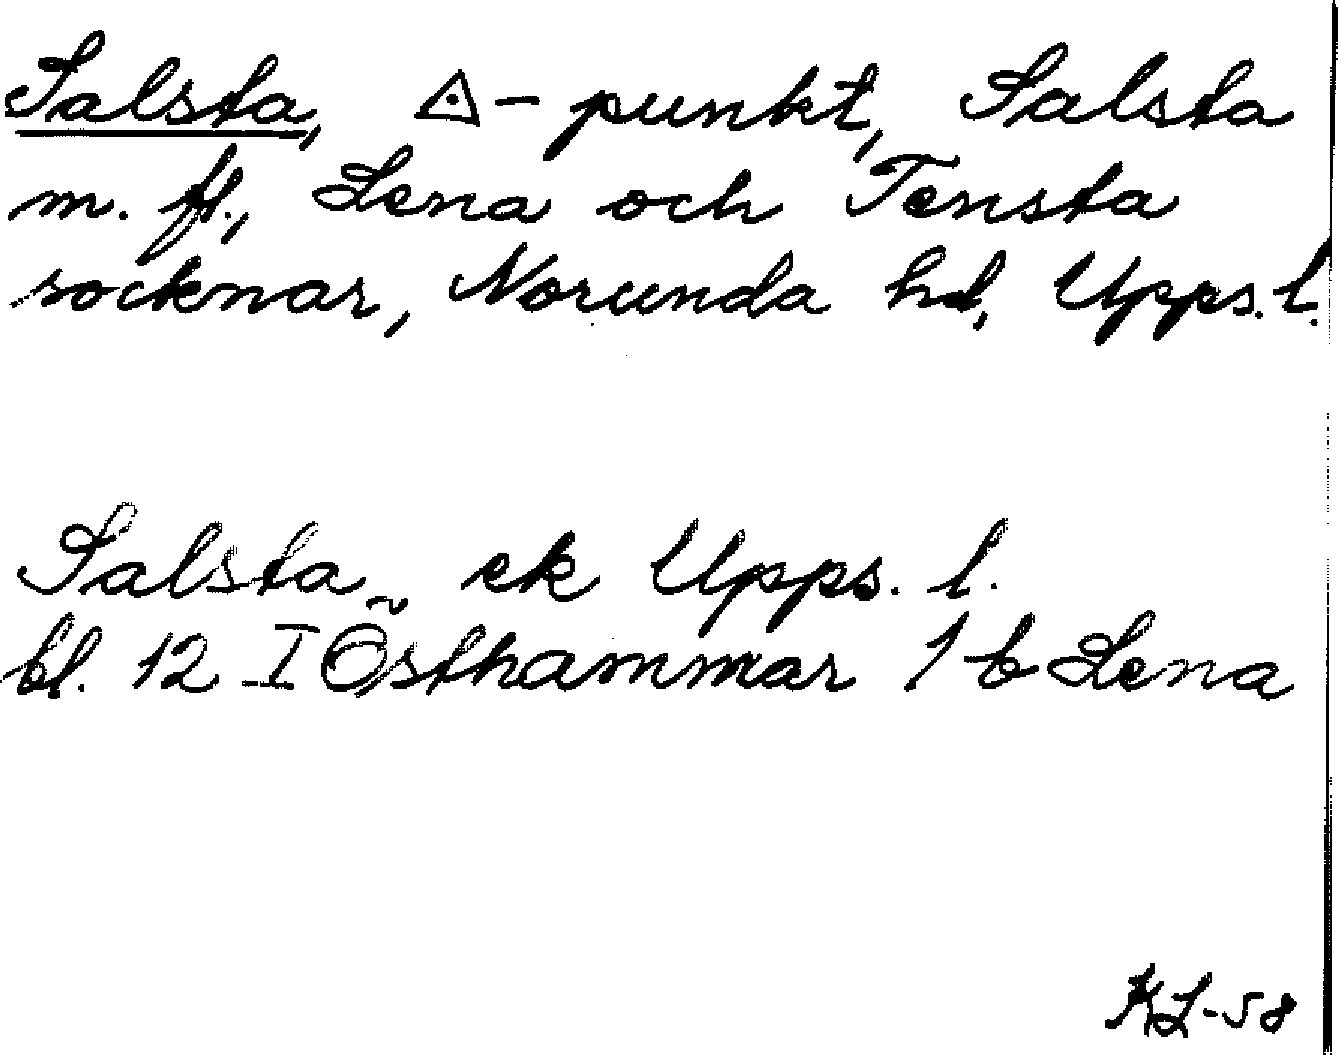 Salsta, ◬-punkt, Salsta
m. fl., Lena och Tensta
socknar, Norunda hd, Upps. l.
Salsta ek Upps. l.
bl. 12 I Östhammar 1 b Lena
KL-58